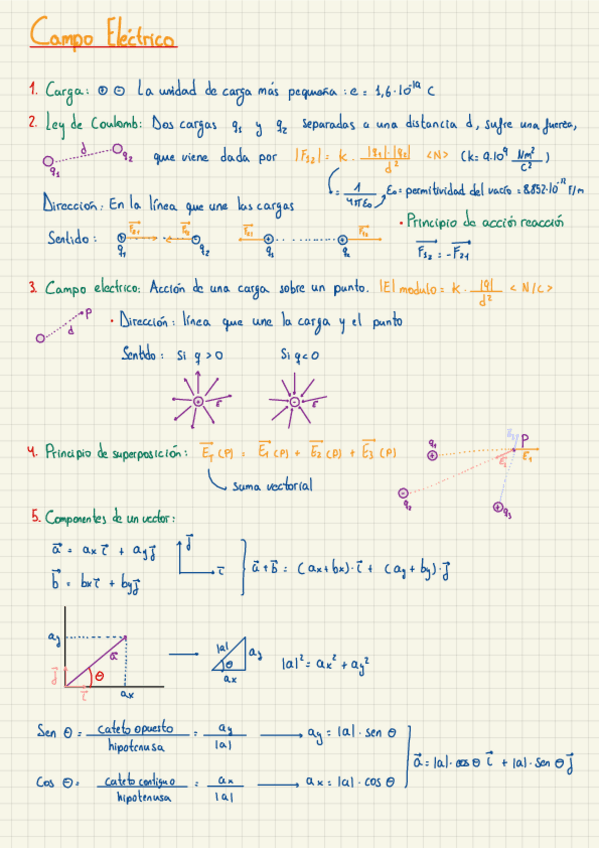 Campo Eléctrico
1. Carga: ⊕ ⊖ La unidad de carga más pequeña : e = 1,6·10⁻¹⁹ C
2. Ley de Coulomb: Dos cargas q₁ y q₂ separadas a una distancia d, sufre una fuerza,
d q₁ q₂ que viene dada por |F₁₂| = k · |q₁|·|q₂| / d² <N> (k = 9.10⁹ Nm²/C²)
= 1/4πε₀ ε₀ = permitividad del vacío = 8.852·10⁻¹² F/m
Dirección: En la línea que une las cargas
• Principio de acción reacción
Sentido: F₂₁ q₁ q₂ q₁ q₂ F₁₂ = -F₂₁
3. Campo electrico: Acción de una carga sobre un punto. |E| modulo = k · |q|/d² <N/C>
d P • Dirección: línea que une la carga y el punto
Sentido: Si q > 0 Si q < 0
E E
4. Principio de superposición: E⃗ᴛ (P) = E⃗₁ (P) + E⃗₂ (P) + E⃗₃ (P)
suma vectorial
q₁ P E₁ E₂ E₃ q₂ q₃
5. Componentes de un vector:
a⃗ = ax i⃗ + ay j⃗
b⃗ = bx i⃗ + by j⃗
j⃗ i⃗ a⃗ + b⃗ = (ax + bx)· i⃗ + (ay + by)· j⃗
ay a⃗ j⃗ θ i⃗ ax
|a| θ ay ax |a|² = ax² + ay²
Sen θ = cateto opuesto / hipotenusa = ay / |a| → ay = |a| · sen θ
a⃗ = |a| · cos θ i⃗ + |a| · sen θ j⃗
Cos θ = cateto contiguo / hipotenusa = ax / |a| → ax = |a| · cos θ